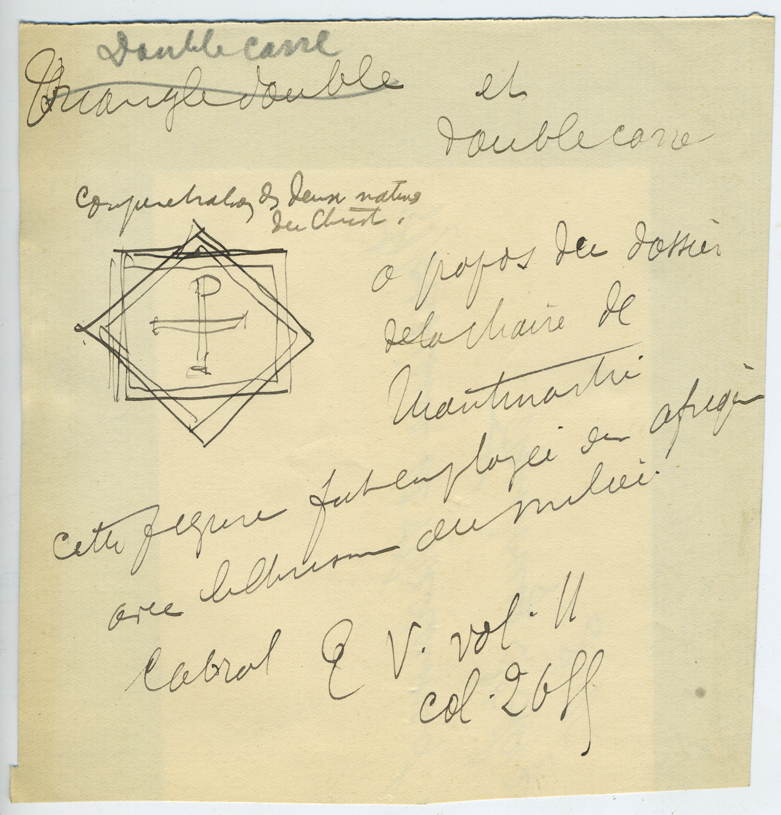 Double carré
Triangle double et
double carré
Compenetration des deux natures
du Christ.
a propos du dossier
de la chaire de
Montmartre
cette figure fut employée en afrique
avec le chrisme au milieu.
Cabrol V. vol. II
col. 26